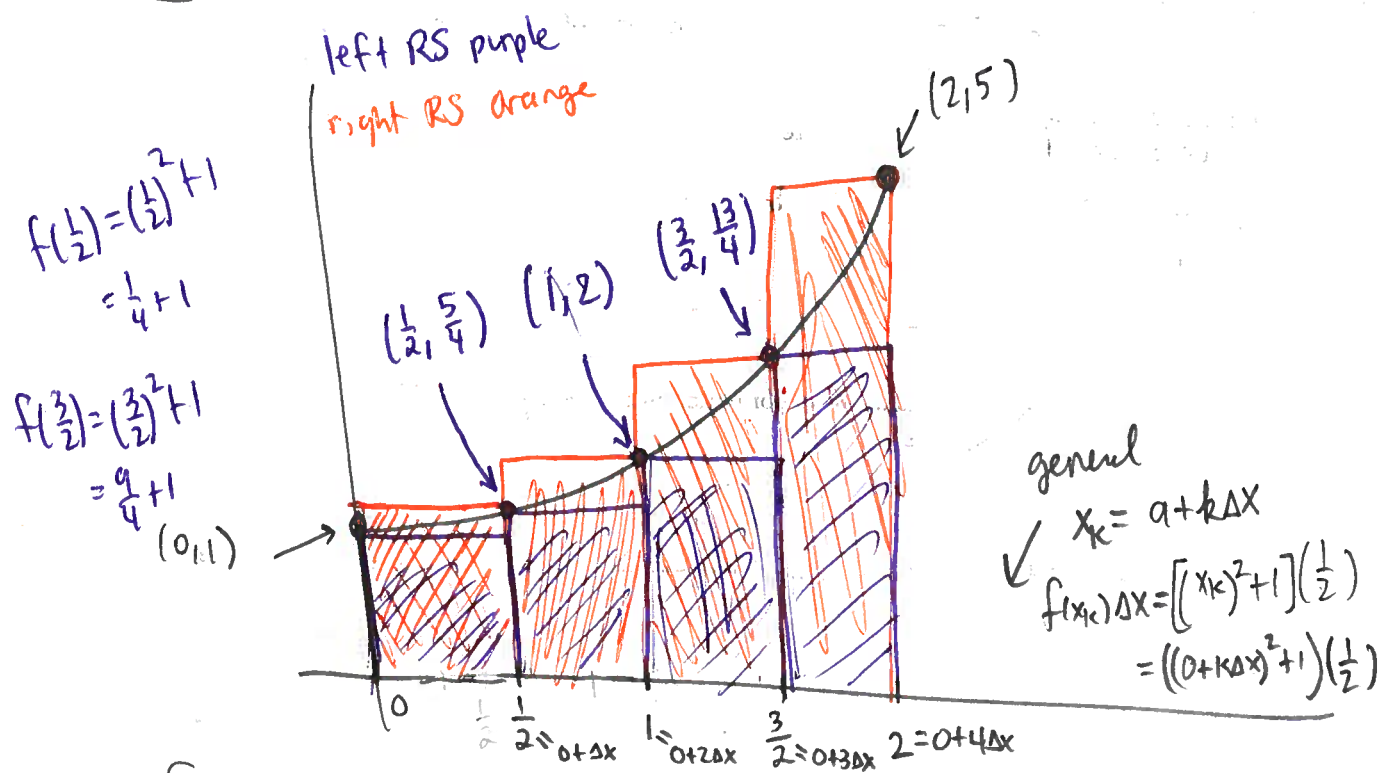 left RS purple
right RS orange
(2,5)
f(1/2)=(1/2)²+1
=1/4+1
(3/2, 13/4)
(1,2)
(1/2, 5/4)
f(3/2)=(3/2)²+1
=9/4+1
(0,1)
general
xₖ= a+kΔx
f(xₖ)Δx=[(xₖ)²+1](1/2)
=((0+kΔx)²+1)(1/2)
0
1/2
1/2=0+Δx
1=0+2Δx
3/2=0+3Δx
2=0+4Δx